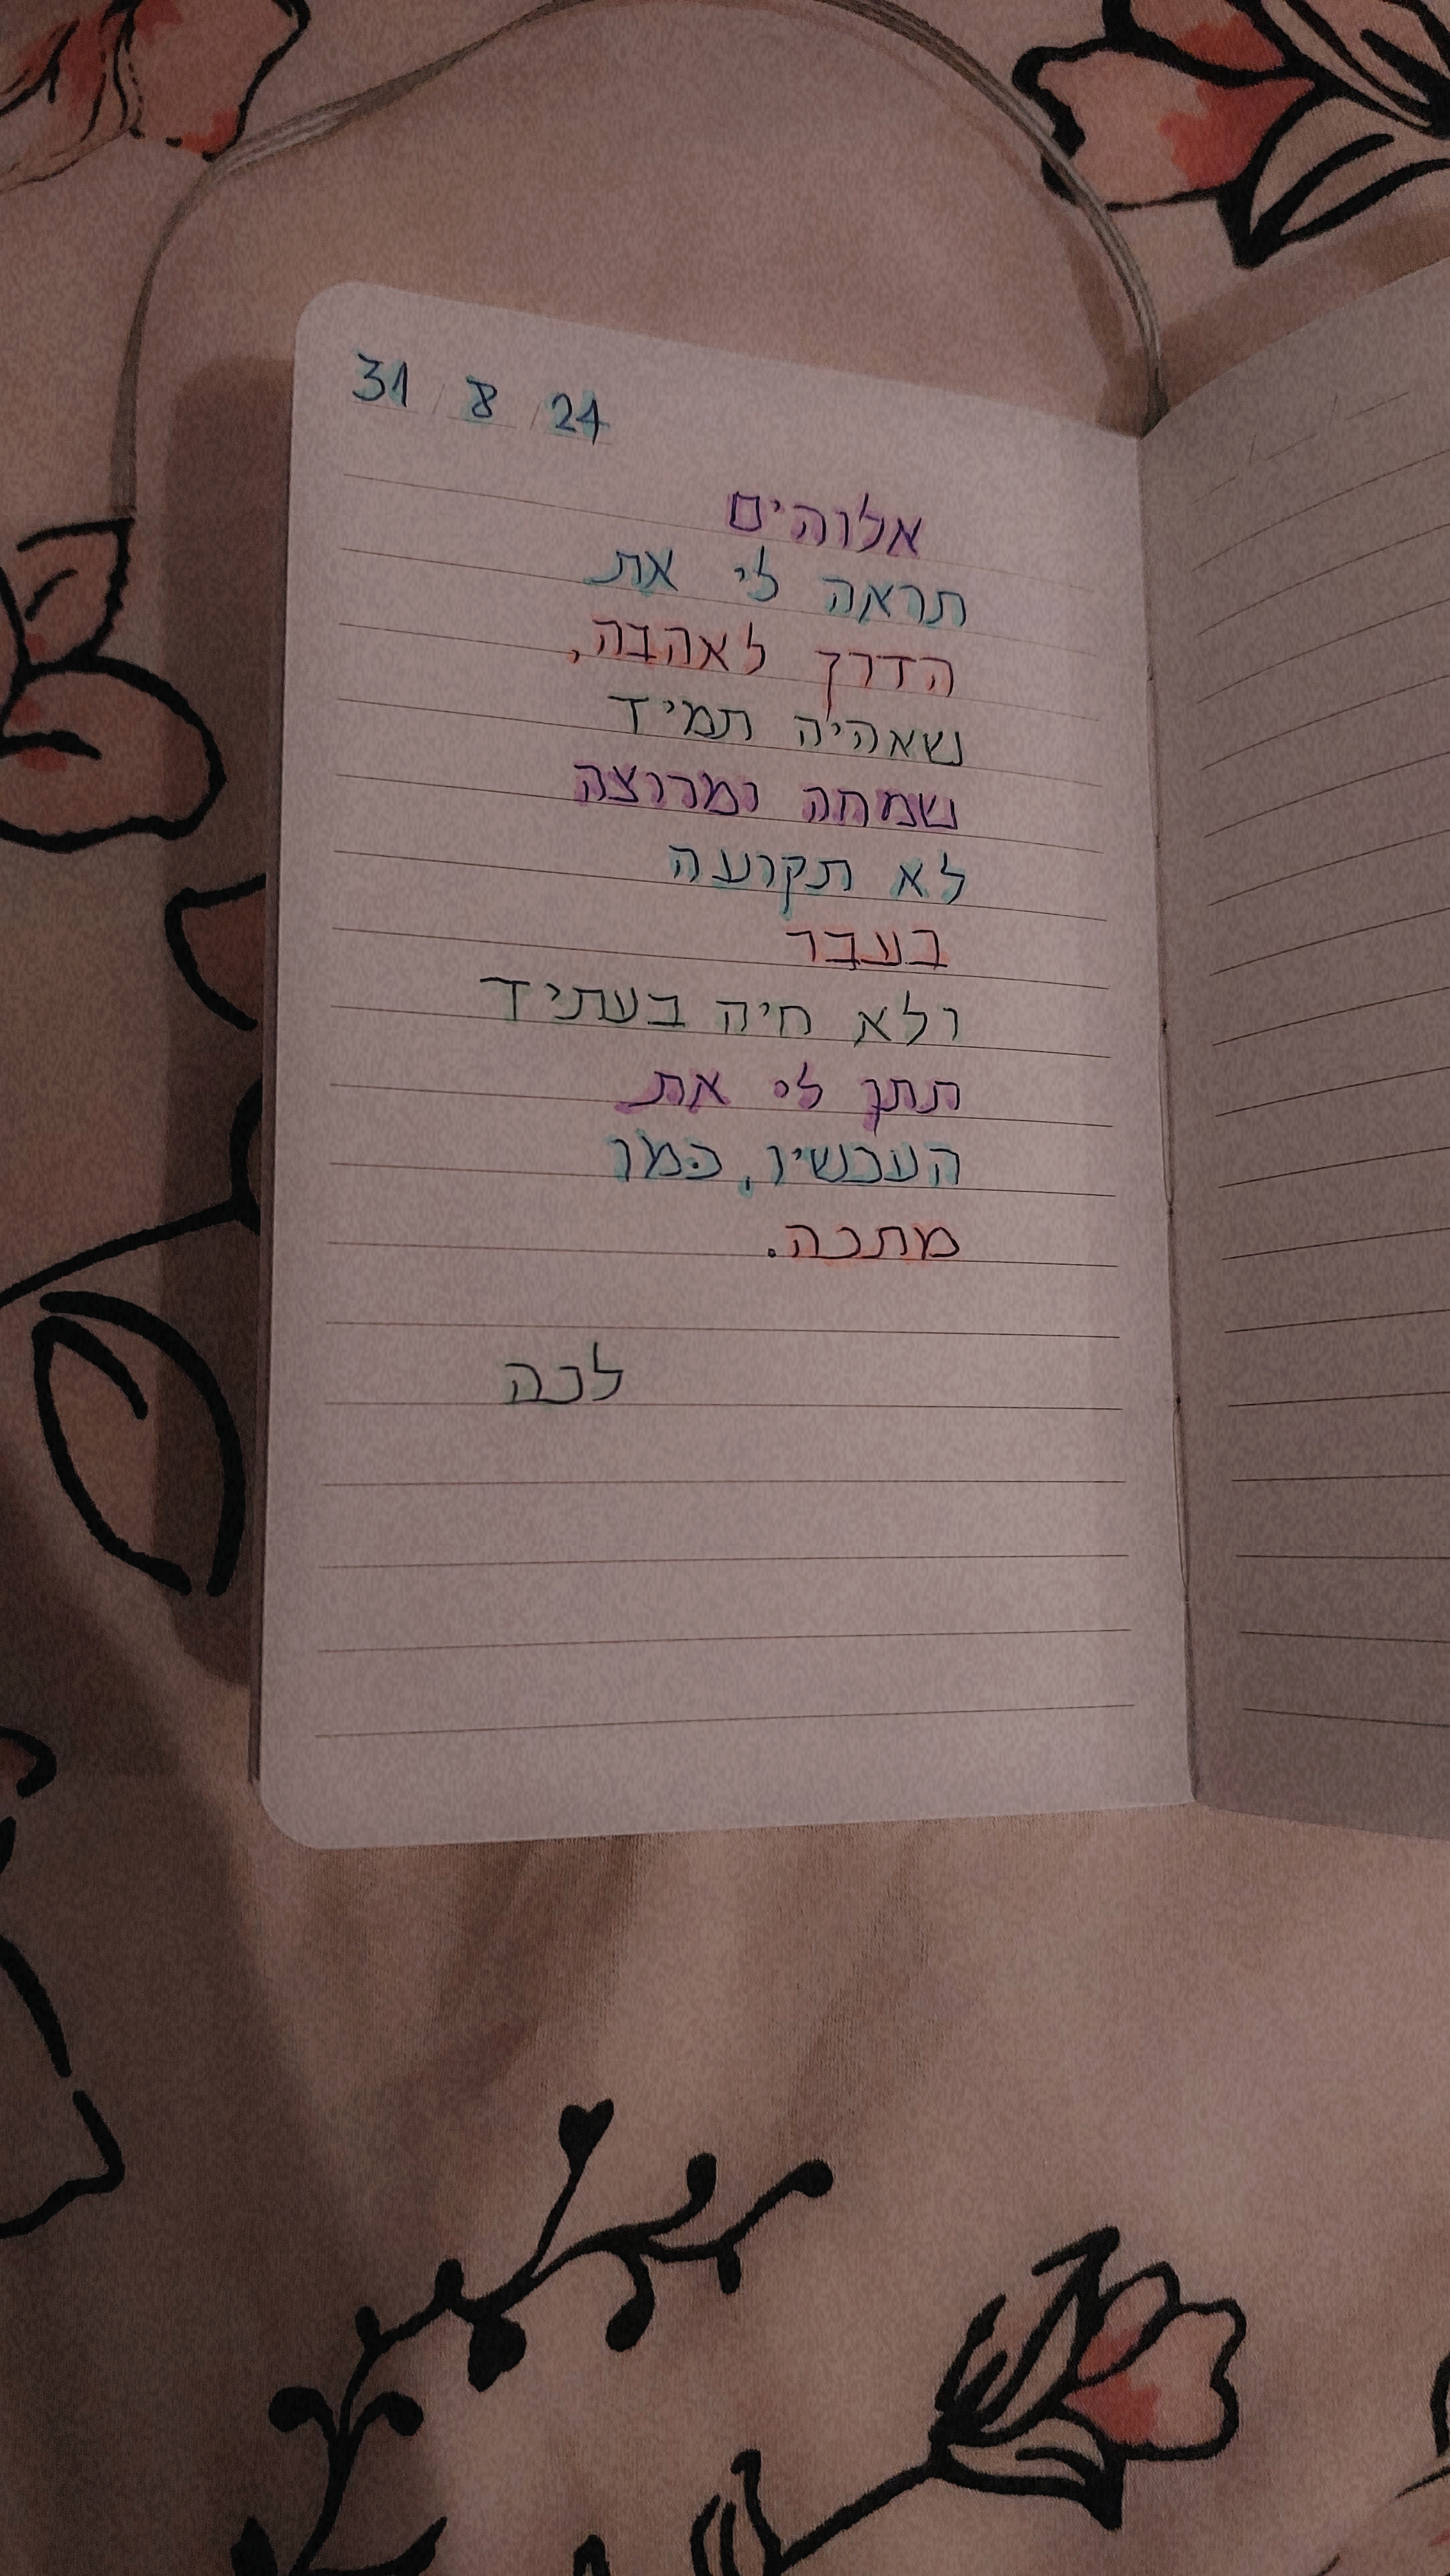 31 / 8 / 24
אלוהים
תראה לי את
הדרך לאהבה,
שאהיה תמיד
שמחה ומרוצה
לא תקועה
בעבר
ולא חיה בעתיד
תתן לי את
העכשיו, כמו
מתכה.
לכה